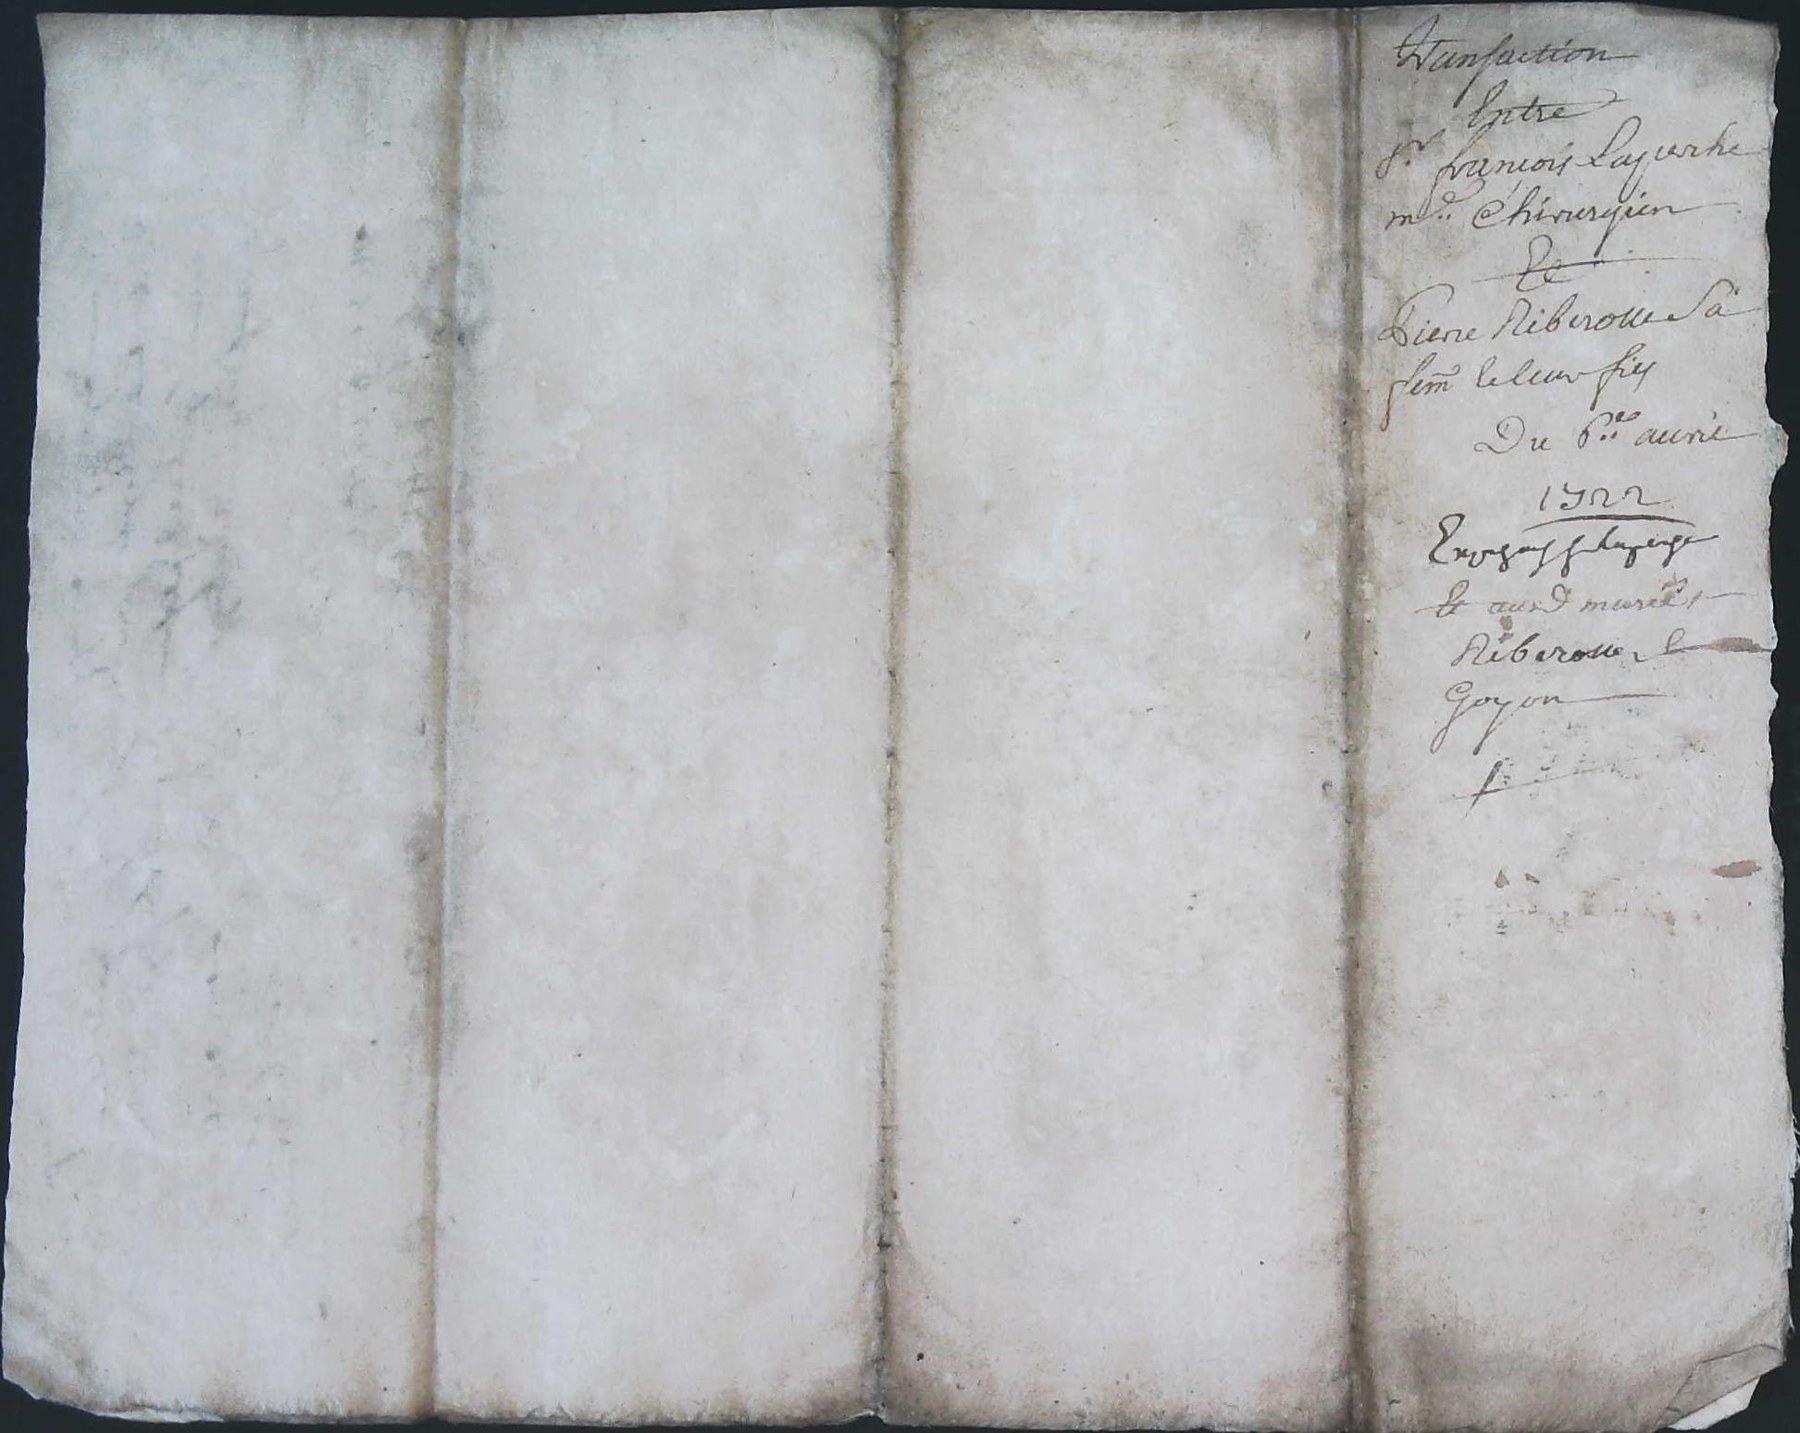 transaction
Entre
sr. francois Laperche
md. Chirurgien
Et
Pierre Riberolle Sa
fem̃ et leur fils
Du 6me auril
1722
Et aud
Riberolle
Goyon